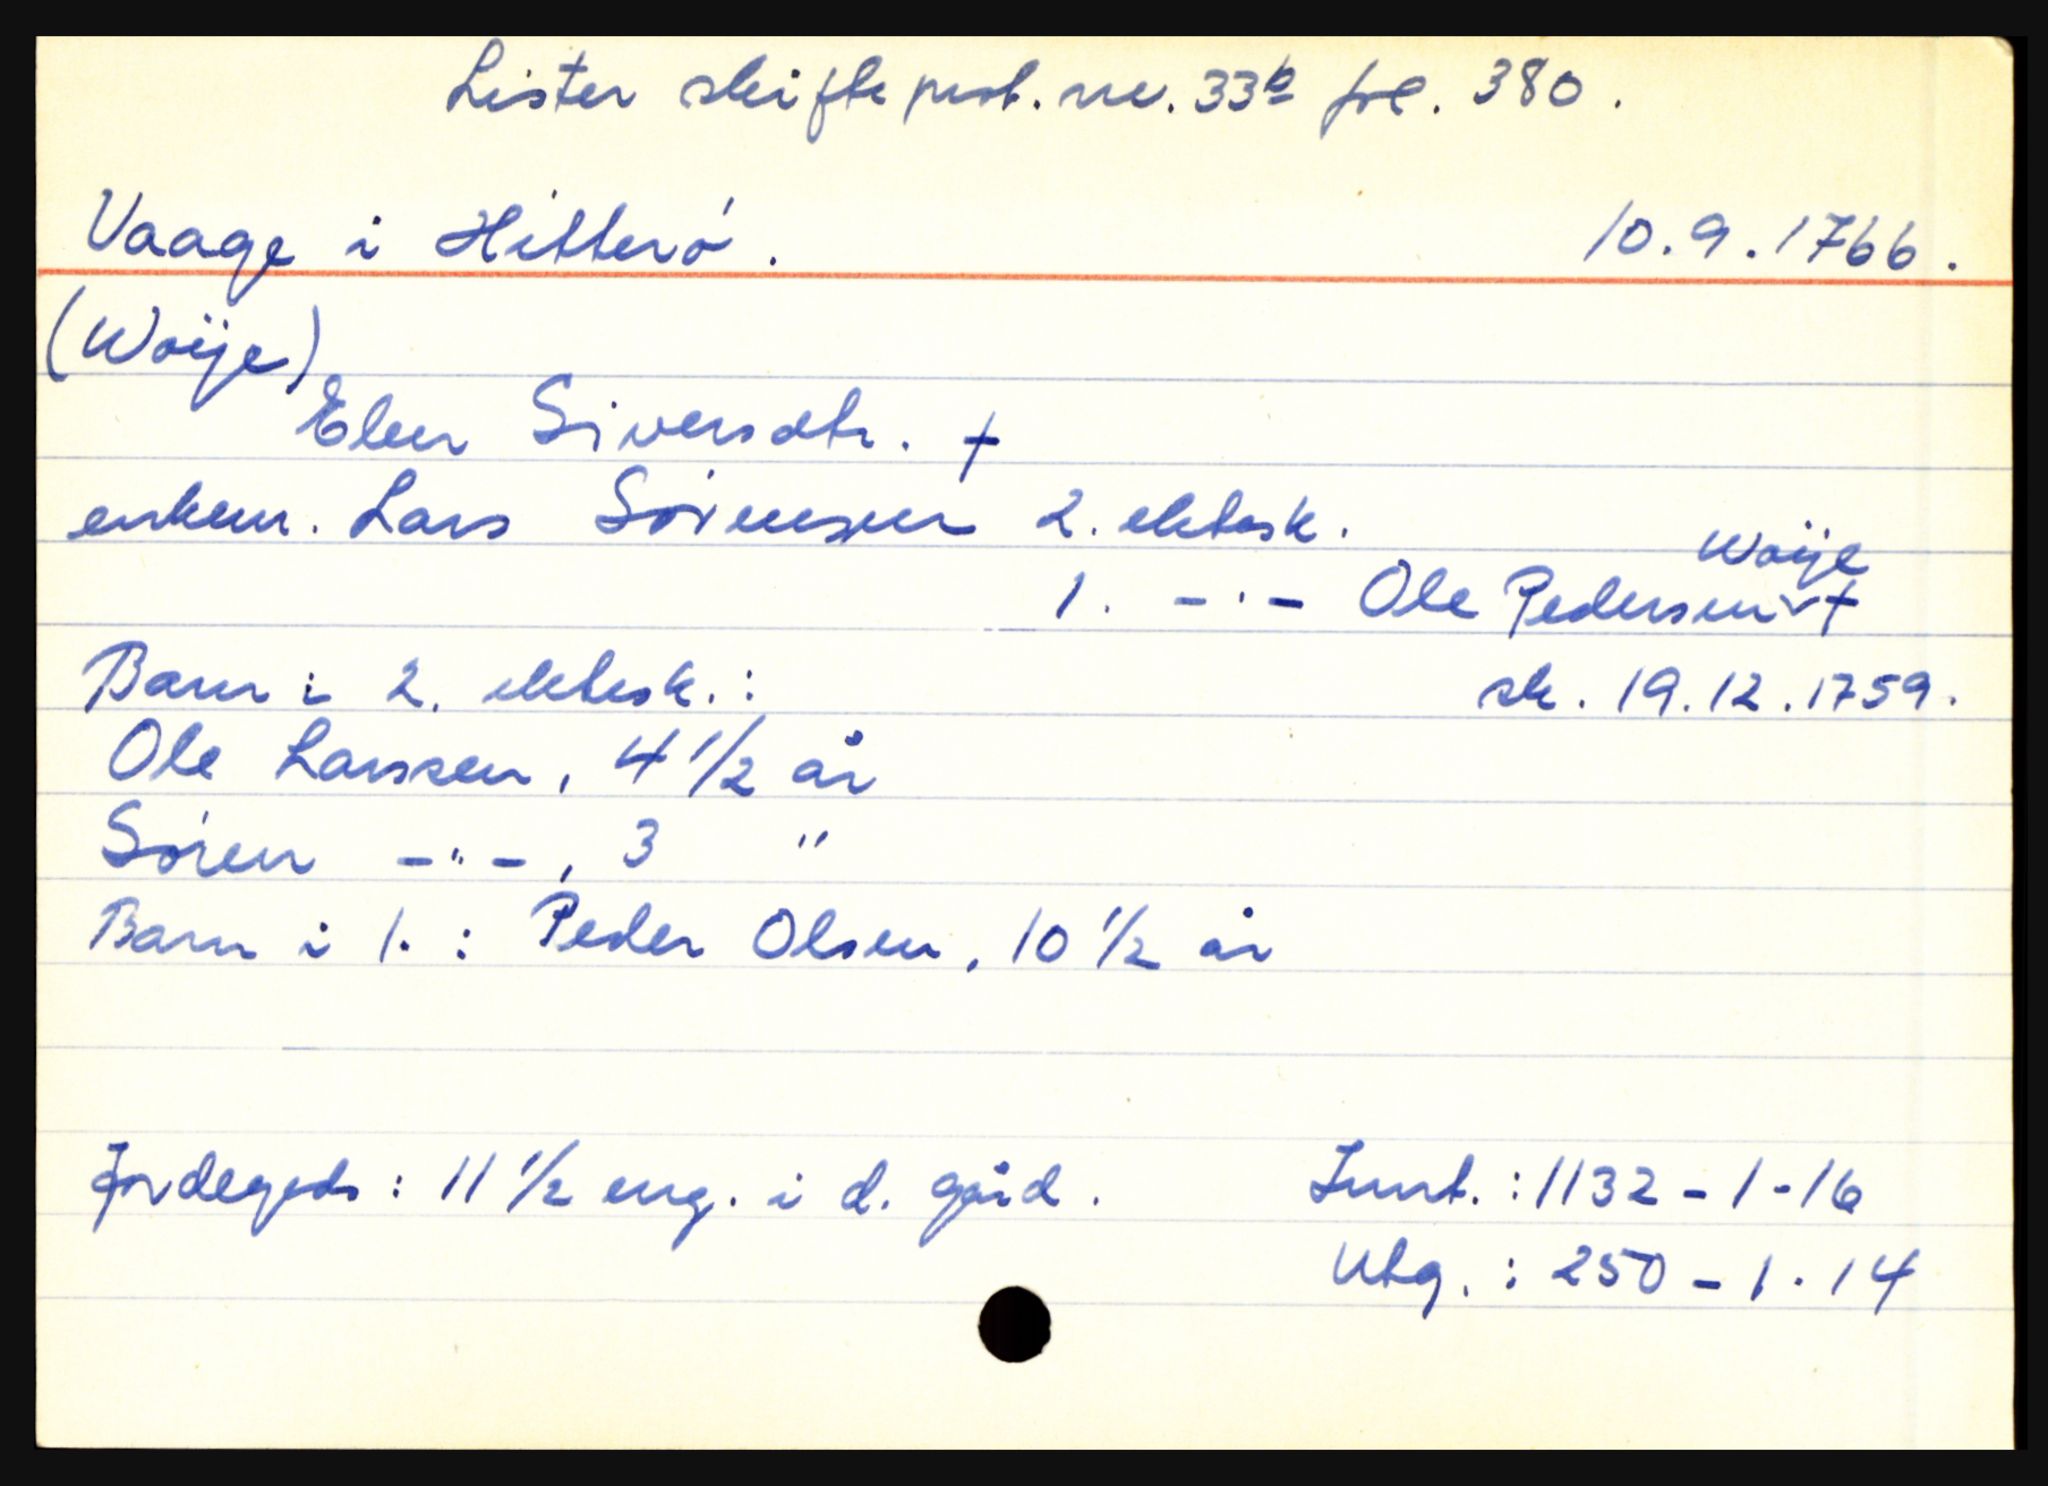 Lister skifteprot. nr. 33b fol. 380.
Vaage i Hitterö. 10.9.1766.
(Woije)
Elen Siversdtr. †
enkem. Lars Sörensen 2. ektesk.
Woije
1. -"- Ole Pedersen ✓ †
Barn i 2. ektesk.: sk. 19.12.1759.
Ole Larssen, 4 1/2 år
Sören -"-, 3 "
Barn i 1. : Peder Olsen, 10 1/2 år
Jordegods: 11 1/2 eng. i d. gård. Innt. : 1132 - 1 - 16
Utg. : 250 - 1 - 14